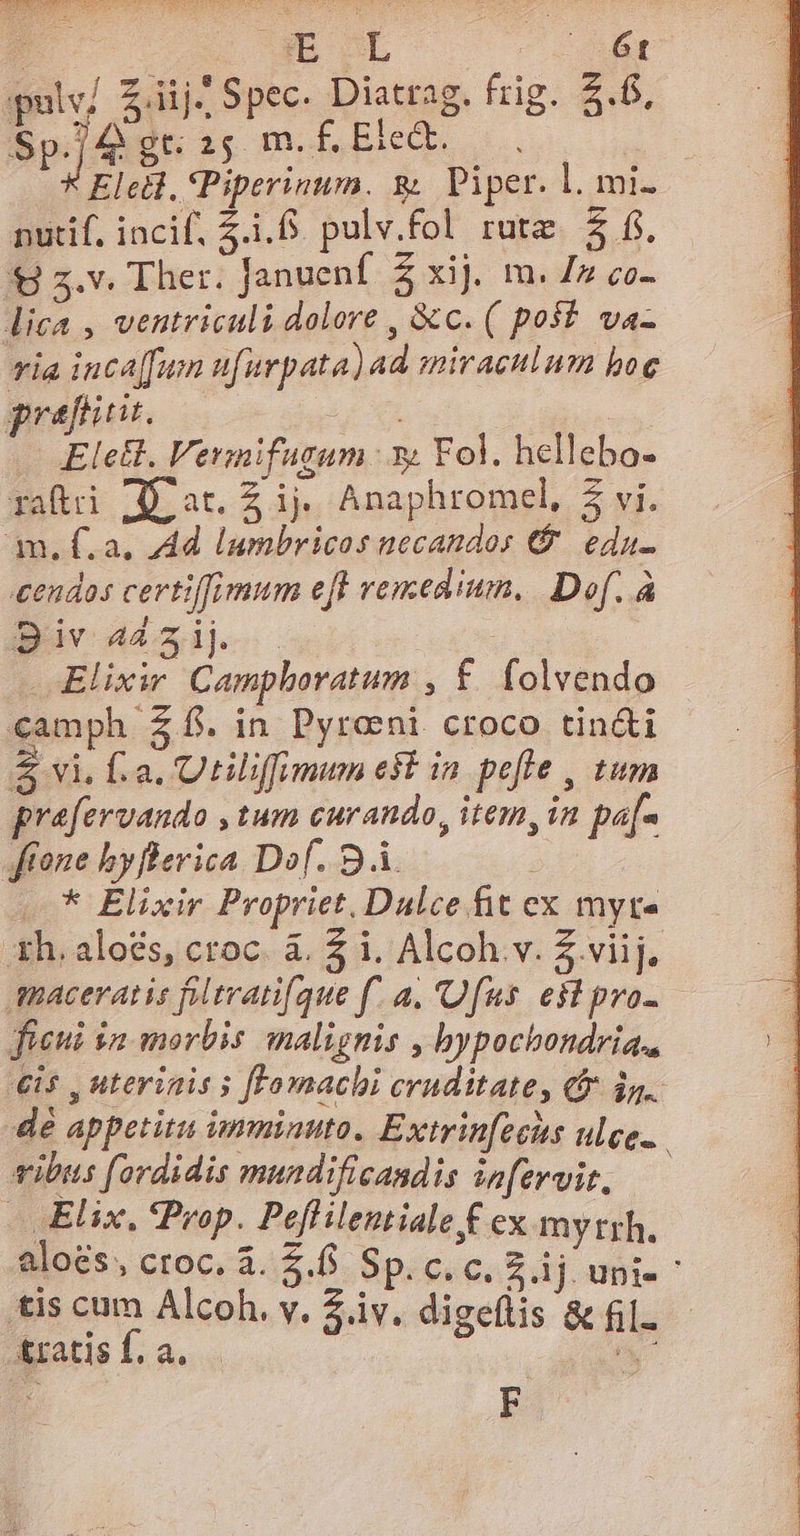 E L 61
pulv. ℥.iij. Spec. Diatrag. frig. ℥.ß,
Sp. 🜍 gt. 25 m. f. Elect.
* Elect. Piperinum. ℞ Piper. l. mi-
nutiſ. inciſ. ℥.i.ß pulv.fol rutæ ℥ ß.
🜔 ʒ.v. Ther. Januenſ ℥ xij. m. In co-
lica , ventriculi dolore , &c. ( poſt va-
ria incaſſum uſurpata) ad miraculum hoc
præſtitit.
Elect. Vermifugum ℞ Fol. hellebo-
raſtri at. ℥ ij. Anaphromel, ℥ vi.
m. ſ. a. Ad lumbricos necandos & edu-
cendos certiſſimum eſt remedium. Doſ. à
℈ iv ad ʒ ij.
Elixir Camphoratum , f ſolvendo
camph ℥ ß. in Pyrœni croco tincti
℥ vi. ſ. a. Utiliſſimum eſt in peſte , tum
præſervando , tum curando, item, in paſ-
ſione hyſterica Doſ. ℈.i.
* Elixir Propriet. Dulce fit ex myr-
rh. aloës, croc. ā. ℥ i. Alcoh.v. ℥.viij.
maceratis filtratiſque ſ. a. Uſus eſt pro-
ficui in morbis malignis , hypochondria-
cis , uterinis ; ſtomachi cruditate, & in-
de appetitu imminuto. Extrinſecùs ulce-
ribus ſordidis mundificandis inſervit.
Elix. Prop. Peſtilentiale f ex myrrh.
aloës, croc. ā. ℥.ß Sp. c. c. ℥.ij. uni-
tis cum Alcoh. v. ℥.iv. digeſtis & fil-
tratis ſ. a.
F